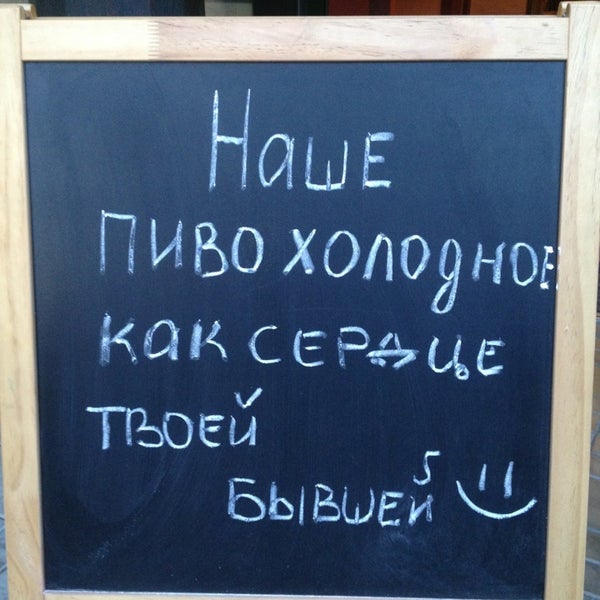 Наше
пиво холодное
как сердце
твоей
бывшей